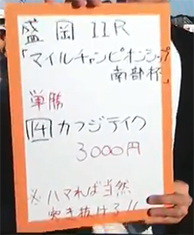 盛岡 11R
「マイルチャンピオンシップ
南部杯」
単勝
14 カフジテイク
3000円
※ハマれば当然
突き抜ける!!